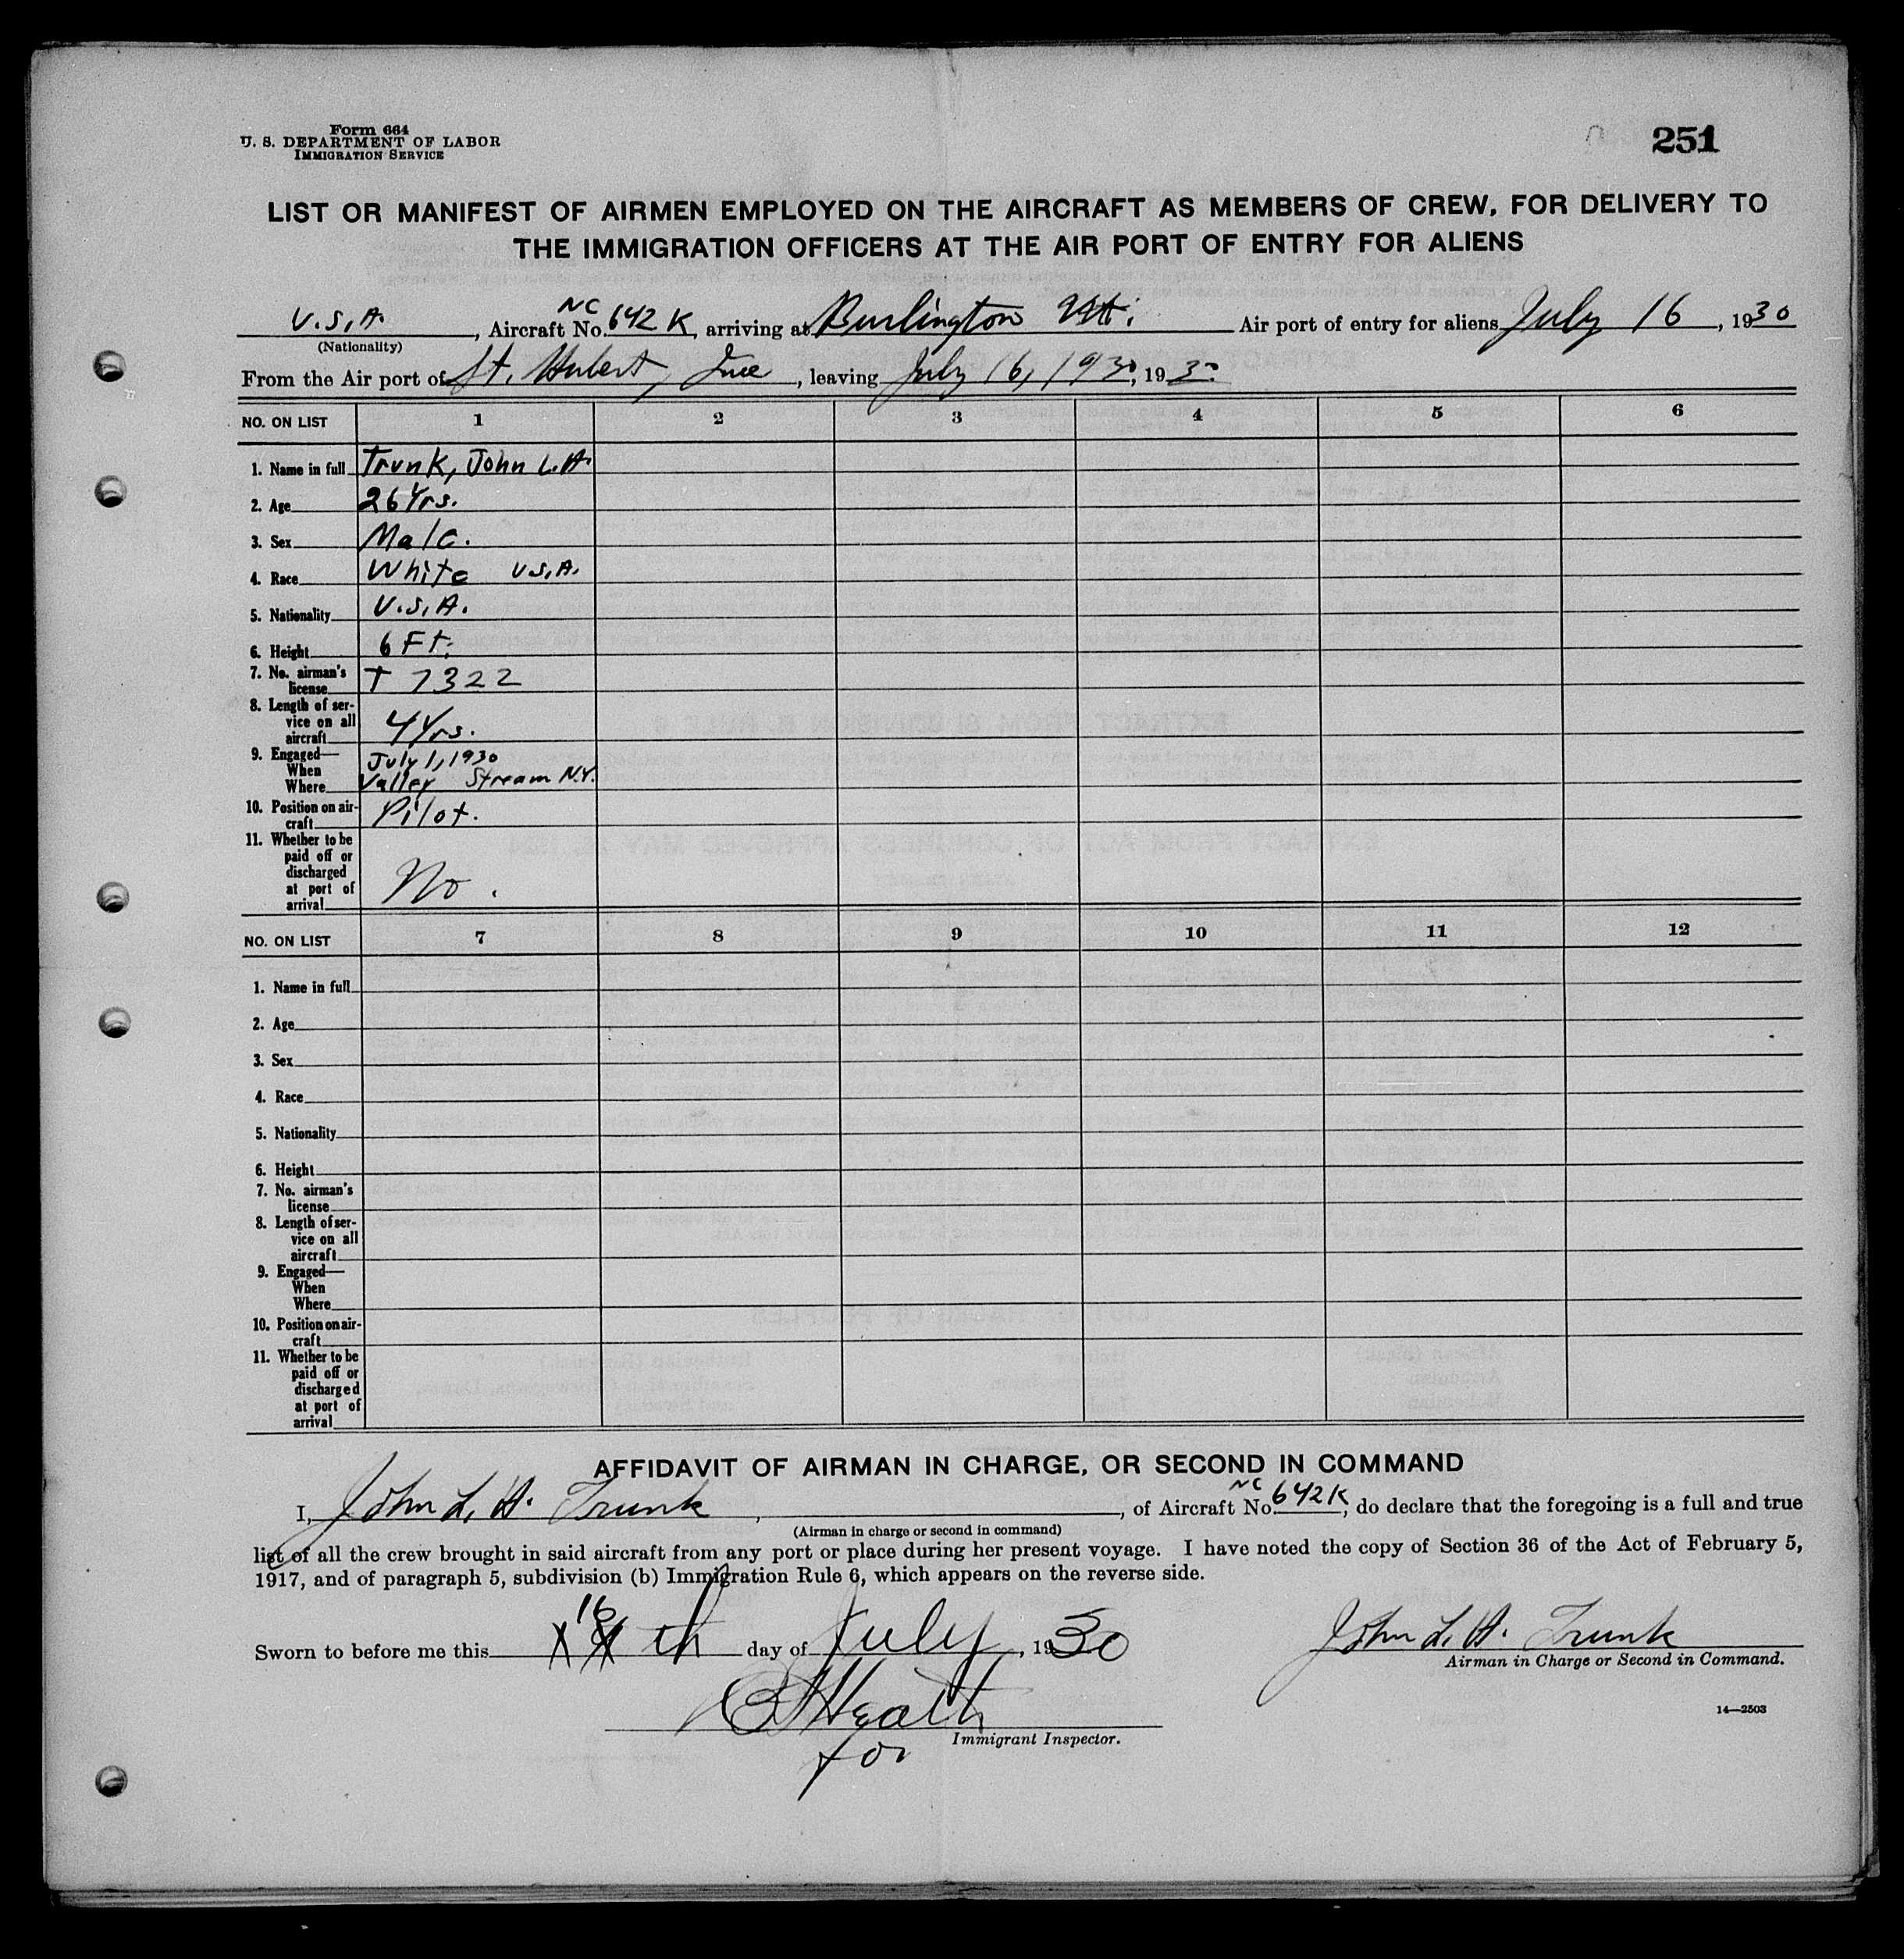 Form 664
U. S. DEPARTMENT OF LABOR
IMMIGRATION SERVICE
251
LIST OR MANIFEST OF AIRMEN EMPLOYED ON THE AIRCRAFT AS MEMBERS OF CREW, FOR DELIVERY TO
THE IMMIGRATION OFFICERS AT THE AIR PORT OF ENTRY FOR ALIENS
U.S.A. , Aircraft No. NC 642 K, arriving at Burlington Vt. Air port of entry for aliens July 16, 1930
(Nationality)
From the Air port of St. Hubert, Que, leaving July 16, 1930, 1930
NO. ON LIST 1 2 3 4 5 6
1. Name in full Trunk, John L.H.
2. Age 26 Yrs.
3. Sex Male.
4. Race White U.S.A.
5. Nationality U.S.A.
6. Height 6 Ft.
7. No. airman's
license T 7322
8. Length of ser-
vice on all
aircraft 4 Yrs.
9. Engaged—
When July 1, 1930
Where Valley Stream N.Y.
10. Position on air-
craft Pilot.
11. Whether to be
paid off or
discharged
at port of
arrival No.
NO. ON LIST 7 8 9 10 11 12
1. Name in full
2. Age
3. Sex
4. Race
5. Nationality
6. Height
7. No. airman's
license
8. Length of ser-
vice on all
aircraft
9. Engaged—
When
Where
10. Position on air-
craft
11. Whether to be
paid off or
discharged
at port of
arrival
AFFIDAVIT OF AIRMAN IN CHARGE, OR SECOND IN COMMAND
I, John L. H. Trunk, , of Aircraft No. NC 642K, do declare that the foregoing is a full and true
(Airman in charge or second in command)
list of all the crew brought in said aircraft from any port or place during her present voyage. I have noted the copy of Section 36 of the Act of February 5,
1917, and of paragraph 5, subdivision (b) Immigration Rule 6, which appears on the reverse side.
Sworn to before me this 16 th day of July, 1930
John L. H. Trunk
Airman in Charge or Second in Command.
Heath
Immigrant Inspector.
for
14—2503